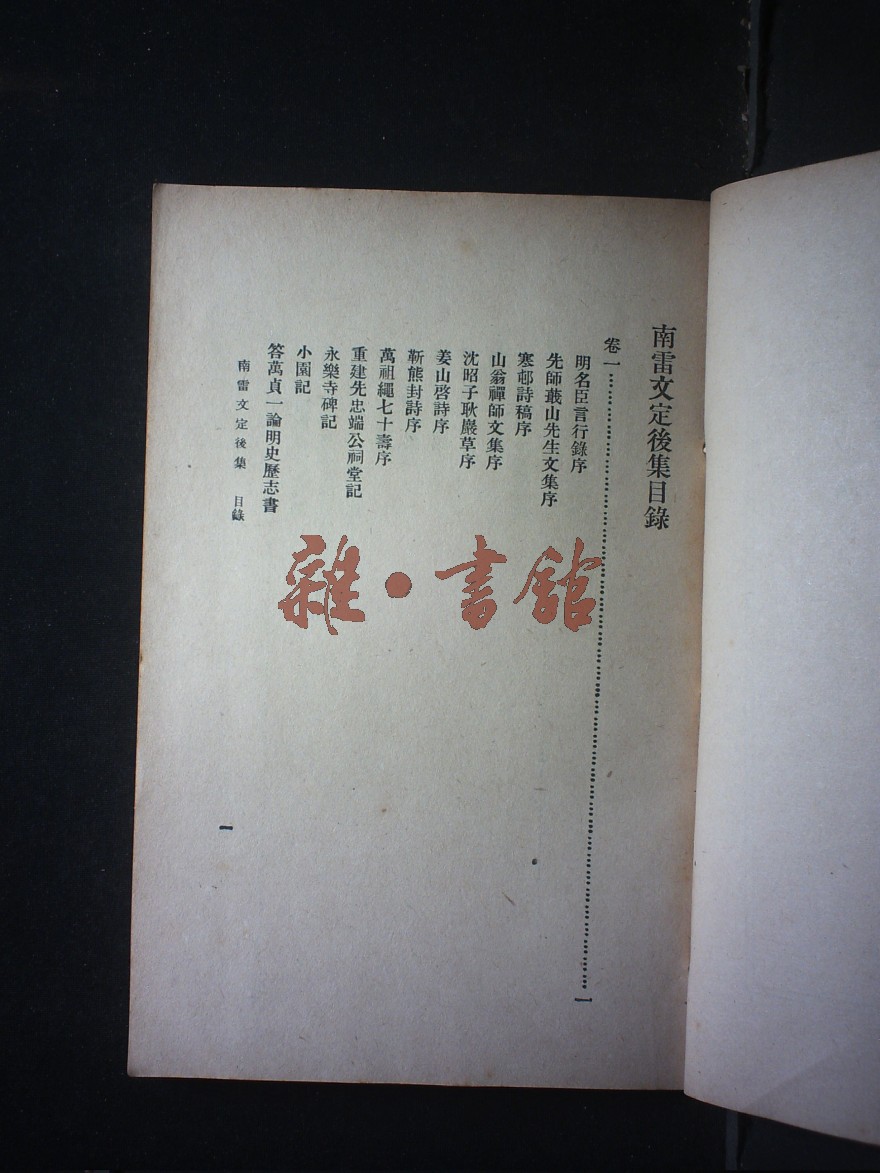 南雷文定後集目錄
卷一……………………………………一
明名臣言行錄序
先師蕺山先生文集序
寒邨詩稿序
山翁禪師文集序
沈昭子耿巖草序
姜山啓詩序
靳熊封詩序
萬祖繩七十壽序
重建先忠端公祠堂記
永樂寺碑記
小園記
答萬貞一論明史歷志書
南雷文定後集 目錄
一
雜•書館